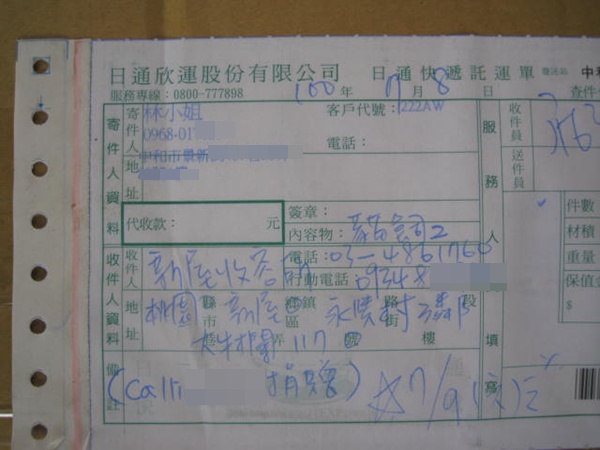 日通欣運股份有限公司 日通快遞託運單
服務專線：0800-777898
100年 7月 8日 查件
寄件人資料
寄件人 林小姐
0968-01
客戶代號：222AW
電話：
地址 中和市
代收款： 元
簽章：
內容物：貓飼2
收件人資料
收件人 新屋收容所
電話：03-4861760
行動電話：0948
地址 桃園 縣市 新屋 鄉鎮區 永興村 路街 段
巷 弄 117 號 樓
備註
(Calli 捐贈) 7/9(六)
服務人填寫
收件員
送件員
件數
材積
重量
保值金
$